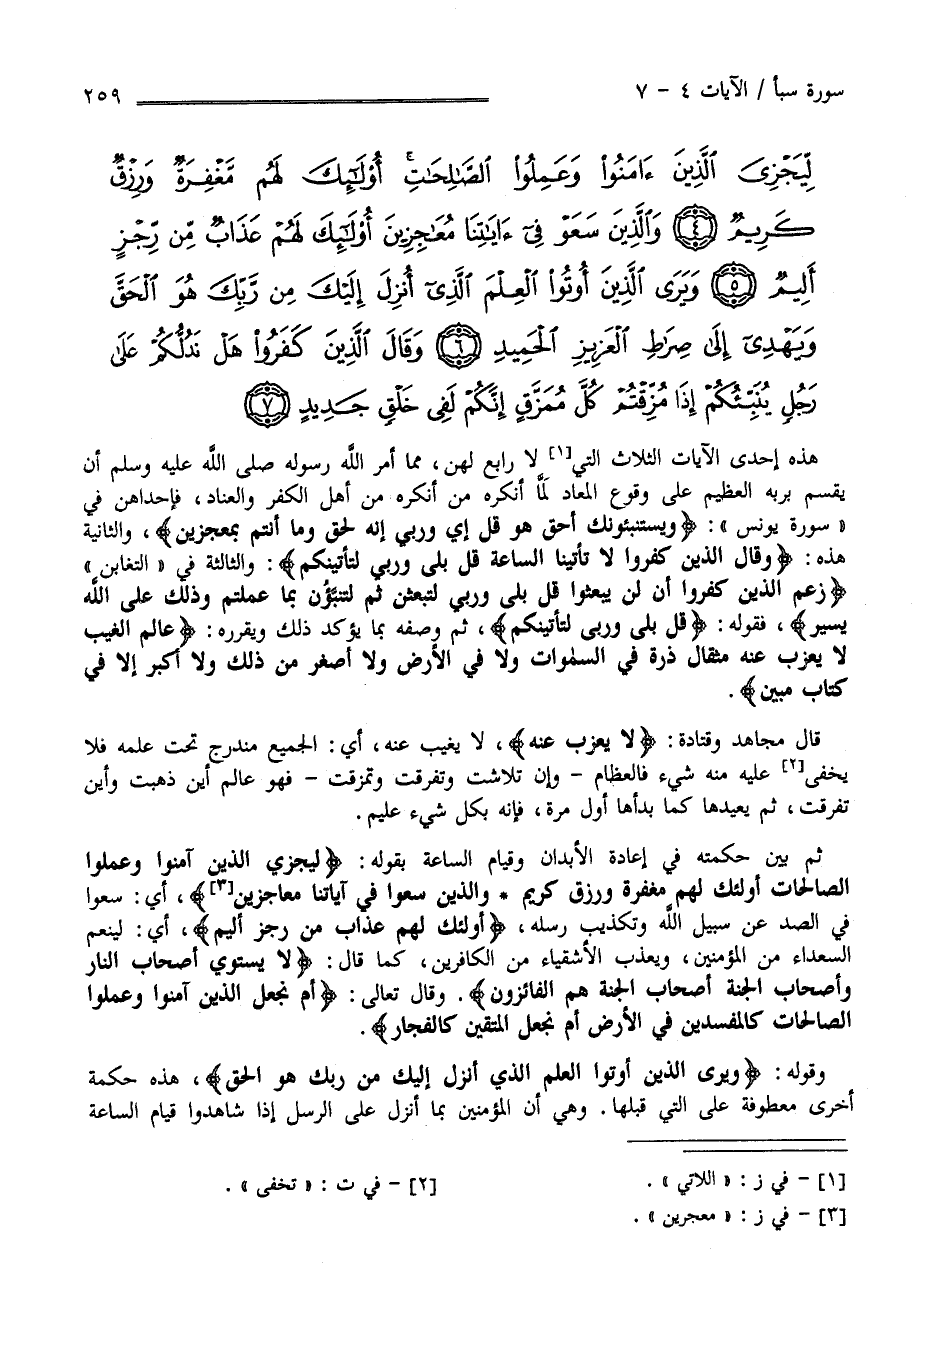 سورة سبأ / الآيات ٤ - ٧ ٢٥٩
لِّيَجْزِىَ ٱلَّذِينَ ءَامَنُوا۟ وَعَمِلُوا۟ ٱلصَّـٰلِحَـٰتِ ۚ أُو۟لَـٰٓئِكَ لَهُم مَّغْفِرَةٌ وَرِزْقٌ
كَرِيمٌ ﴿٤﴾ وَٱلَّذِينَ سَعَوْ فِىٓ ءَايَـٰتِنَا مُعَـٰجِزِينَ أُو۟لَـٰٓئِكَ لَهُمْ عَذَابٌ مِّن رِّجْزٍ
أَلِيمٌ ﴿٥﴾ وَيَرَى ٱلَّذِينَ أُوتُوا۟ ٱلْعِلْمَ ٱلَّذِىٓ أُنزِلَ إِلَيْكَ مِن رَّبِّكَ هُوَ ٱلْحَقَّ
وَيَهْدِىٓ إِلَىٰ صِرَٰطِ ٱلْعَزِيزِ ٱلْحَمِيدِ ﴿٦﴾ وَقَالَ ٱلَّذِينَ كَفَرُوا۟ هَلْ نَدُلُّكُمْ عَلَىٰ
رَجُلٍ يُنَبِّئُكُمْ إِذَا مُزِّقْتُمْ كُلَّ مُمَزَّقٍ إِنَّكُمْ لَفِى خَلْقٍ جَدِيدٍ ﴿٧﴾
هذه إحدى الآيات الثلاث التي[١] لا رابع لهن، مما أمر اللَّه رسوله صلى اللَّه عليه وسلم أن
يقسم بربه العظيم على وقوع المعاد لمَّا أنكره من أنكره من أهل الكفر والعناد، فإحداهن في
« سورة يونس »: ﴿ويستنبئونك أحق هو قل إي وربي إنه لحق وما أنتم بمعجزين﴾، والثانية
هذه: ﴿وقال الذين كفروا لا تأتينا الساعة قل بلى وربي لتأتينكم﴾: والثالثة في « التغابن »
﴿زعم الذين كفروا أن لن يبعثوا قل بلى وربي لتبعثن ثم لتنبَّؤُن بما عملتم وذلك على اللَّه
يسير﴾، فقوله: ﴿قل بلى وربى لتأتينكم﴾، ثم وصفه بما يؤكد ذلك ويقرره: ﴿عالم الغيب
لا يعزب عنه مثقال ذرة في السمٰوات ولا في الأرض ولا أصغر من ذلك ولا أكبر إلا في
كتاب مبين﴾.
قال مجاهد وقتادة: ﴿لا يعزب عنه﴾، لا يغيب عنه، أي: الجميع مندرج تحت علمه فلا
يخفى[٢] عليه منه شيء فالعظام - وإن تلاشت وتفرقت وتمزقت - فهو عالم أين ذهبت وأين
تفرقت، ثم يعيدها كما بدأها أول مرة، فإنه بكل شيء عليم.
ثم بين حكمته في إعادة الأبدان وقيام الساعة بقوله: ﴿ليجزي الذين آمنوا وعملوا
الصالحات أولئك لهم مغفرة ورزق كريم * والذين سعوا في آياتنا معاجزين[٣]﴾، أي: سعوا
في الصد عن سبيل اللَّه وتكذيب رسله، ﴿أولئك لهم عذاب من رجز أليم﴾، أي: لينعم
السعداء من المؤمنين، ويعذب الأشقياء من الكافرين، كما قال: ﴿لا يستوي أصحاب النار
وأصحاب الجنة أصحاب الجنة هم الفائزون﴾. وقال تعالى: ﴿أم نجعل الذين آمنوا وعملوا
الصالحات كالمفسدين في الأرض أم نجعل المتقين كالفجار﴾.
وقوله: ﴿ويرى الذين أوتوا العلم الذي أنزل إليك من ربك هو الحق﴾، هذه حكمة
أخرى معطوفة على التي قبلها. وهي أن المؤمنين بما أنزل على الرسل إذا شاهدوا قيام الساعة
[١] - في ز: « اللاتي ». [٢] - في ت: « تخفى ».
[٣] - في ز: « معجرين ».